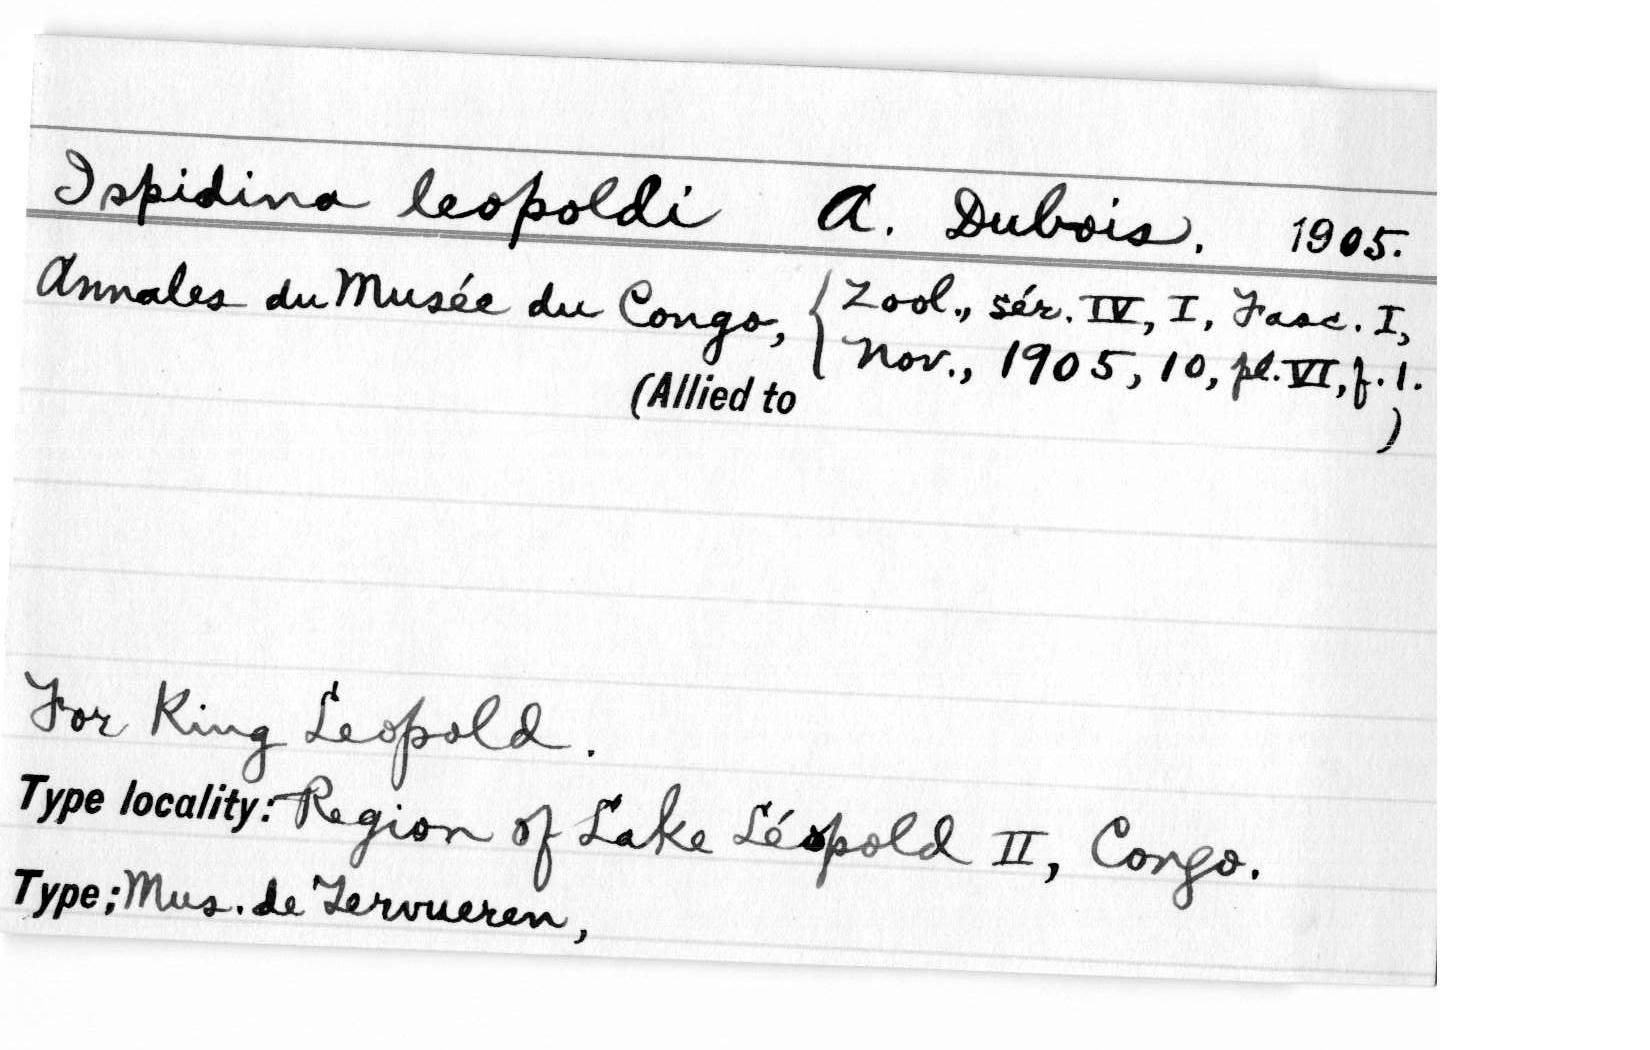 Ispidina leopoldi A. Dubois. 1905.
Annales du Musée du Congo, { Zool., sér. IV, I, Fasc. I,
Nov., 1905, 10, pl. VI, f. 1.
(Allied to )
For King Leopold.
Type locality: Region of Lake Léopold II, Congo.
Type; Mus. de Tervueren,